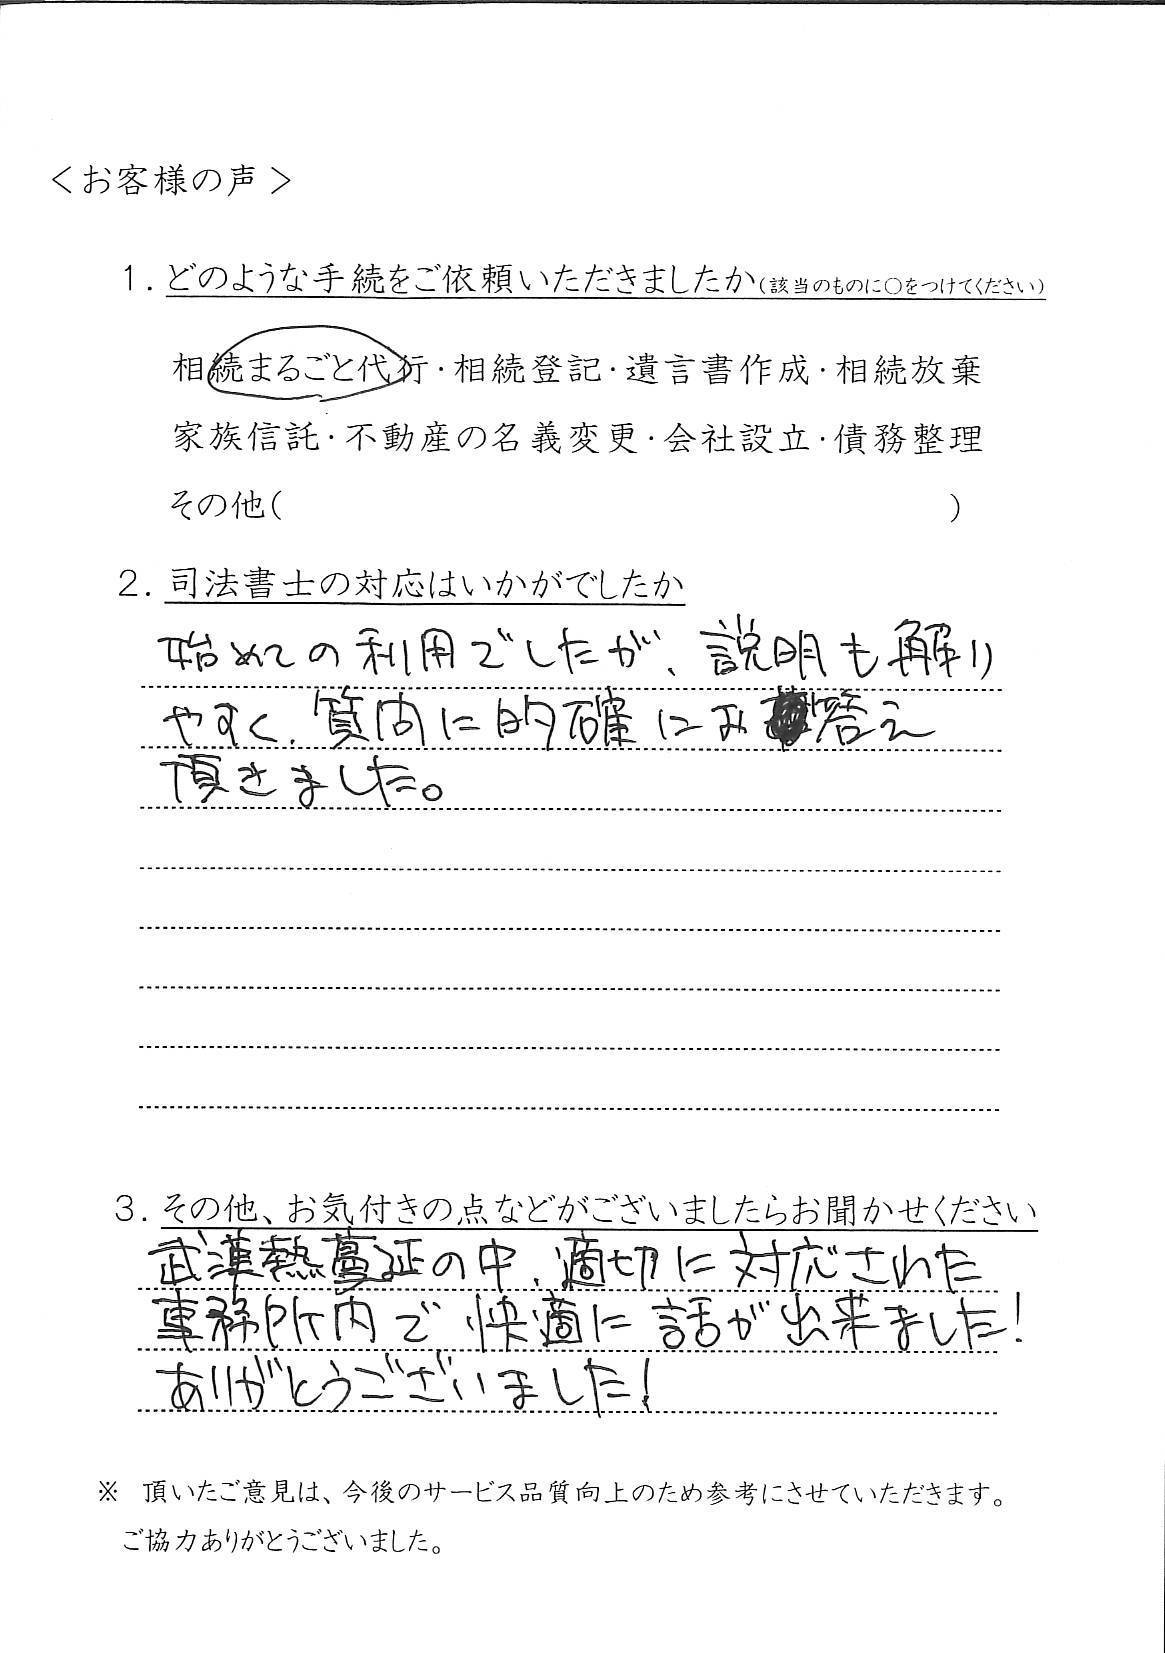 ＜お客様の声＞
1．どのような手続をご依頼いただきましたか（該当のものに○をつけてください）
相続まるごと代行・相続登記・遺言書作成・相続放棄
家族信託・不動産の名義変更・会社設立・債務整理
その他（　　　　　　　　　　　　　　　　　　）
2．司法書士の対応はいかがでしたか
始めての利用でしたが、説明も解り
やすく、質問に的確にお答え
頂きました。
3．その他、お気付きの点などがございましたらお聞かせください
武漢熱蔓延の中、適切に対応された
事務所内で快適に話が出来ました！
ありがとうございました！
※　頂いたご意見は、今後のサービス品質向上のため参考にさせていただきます。
ご協力ありがとうございました。